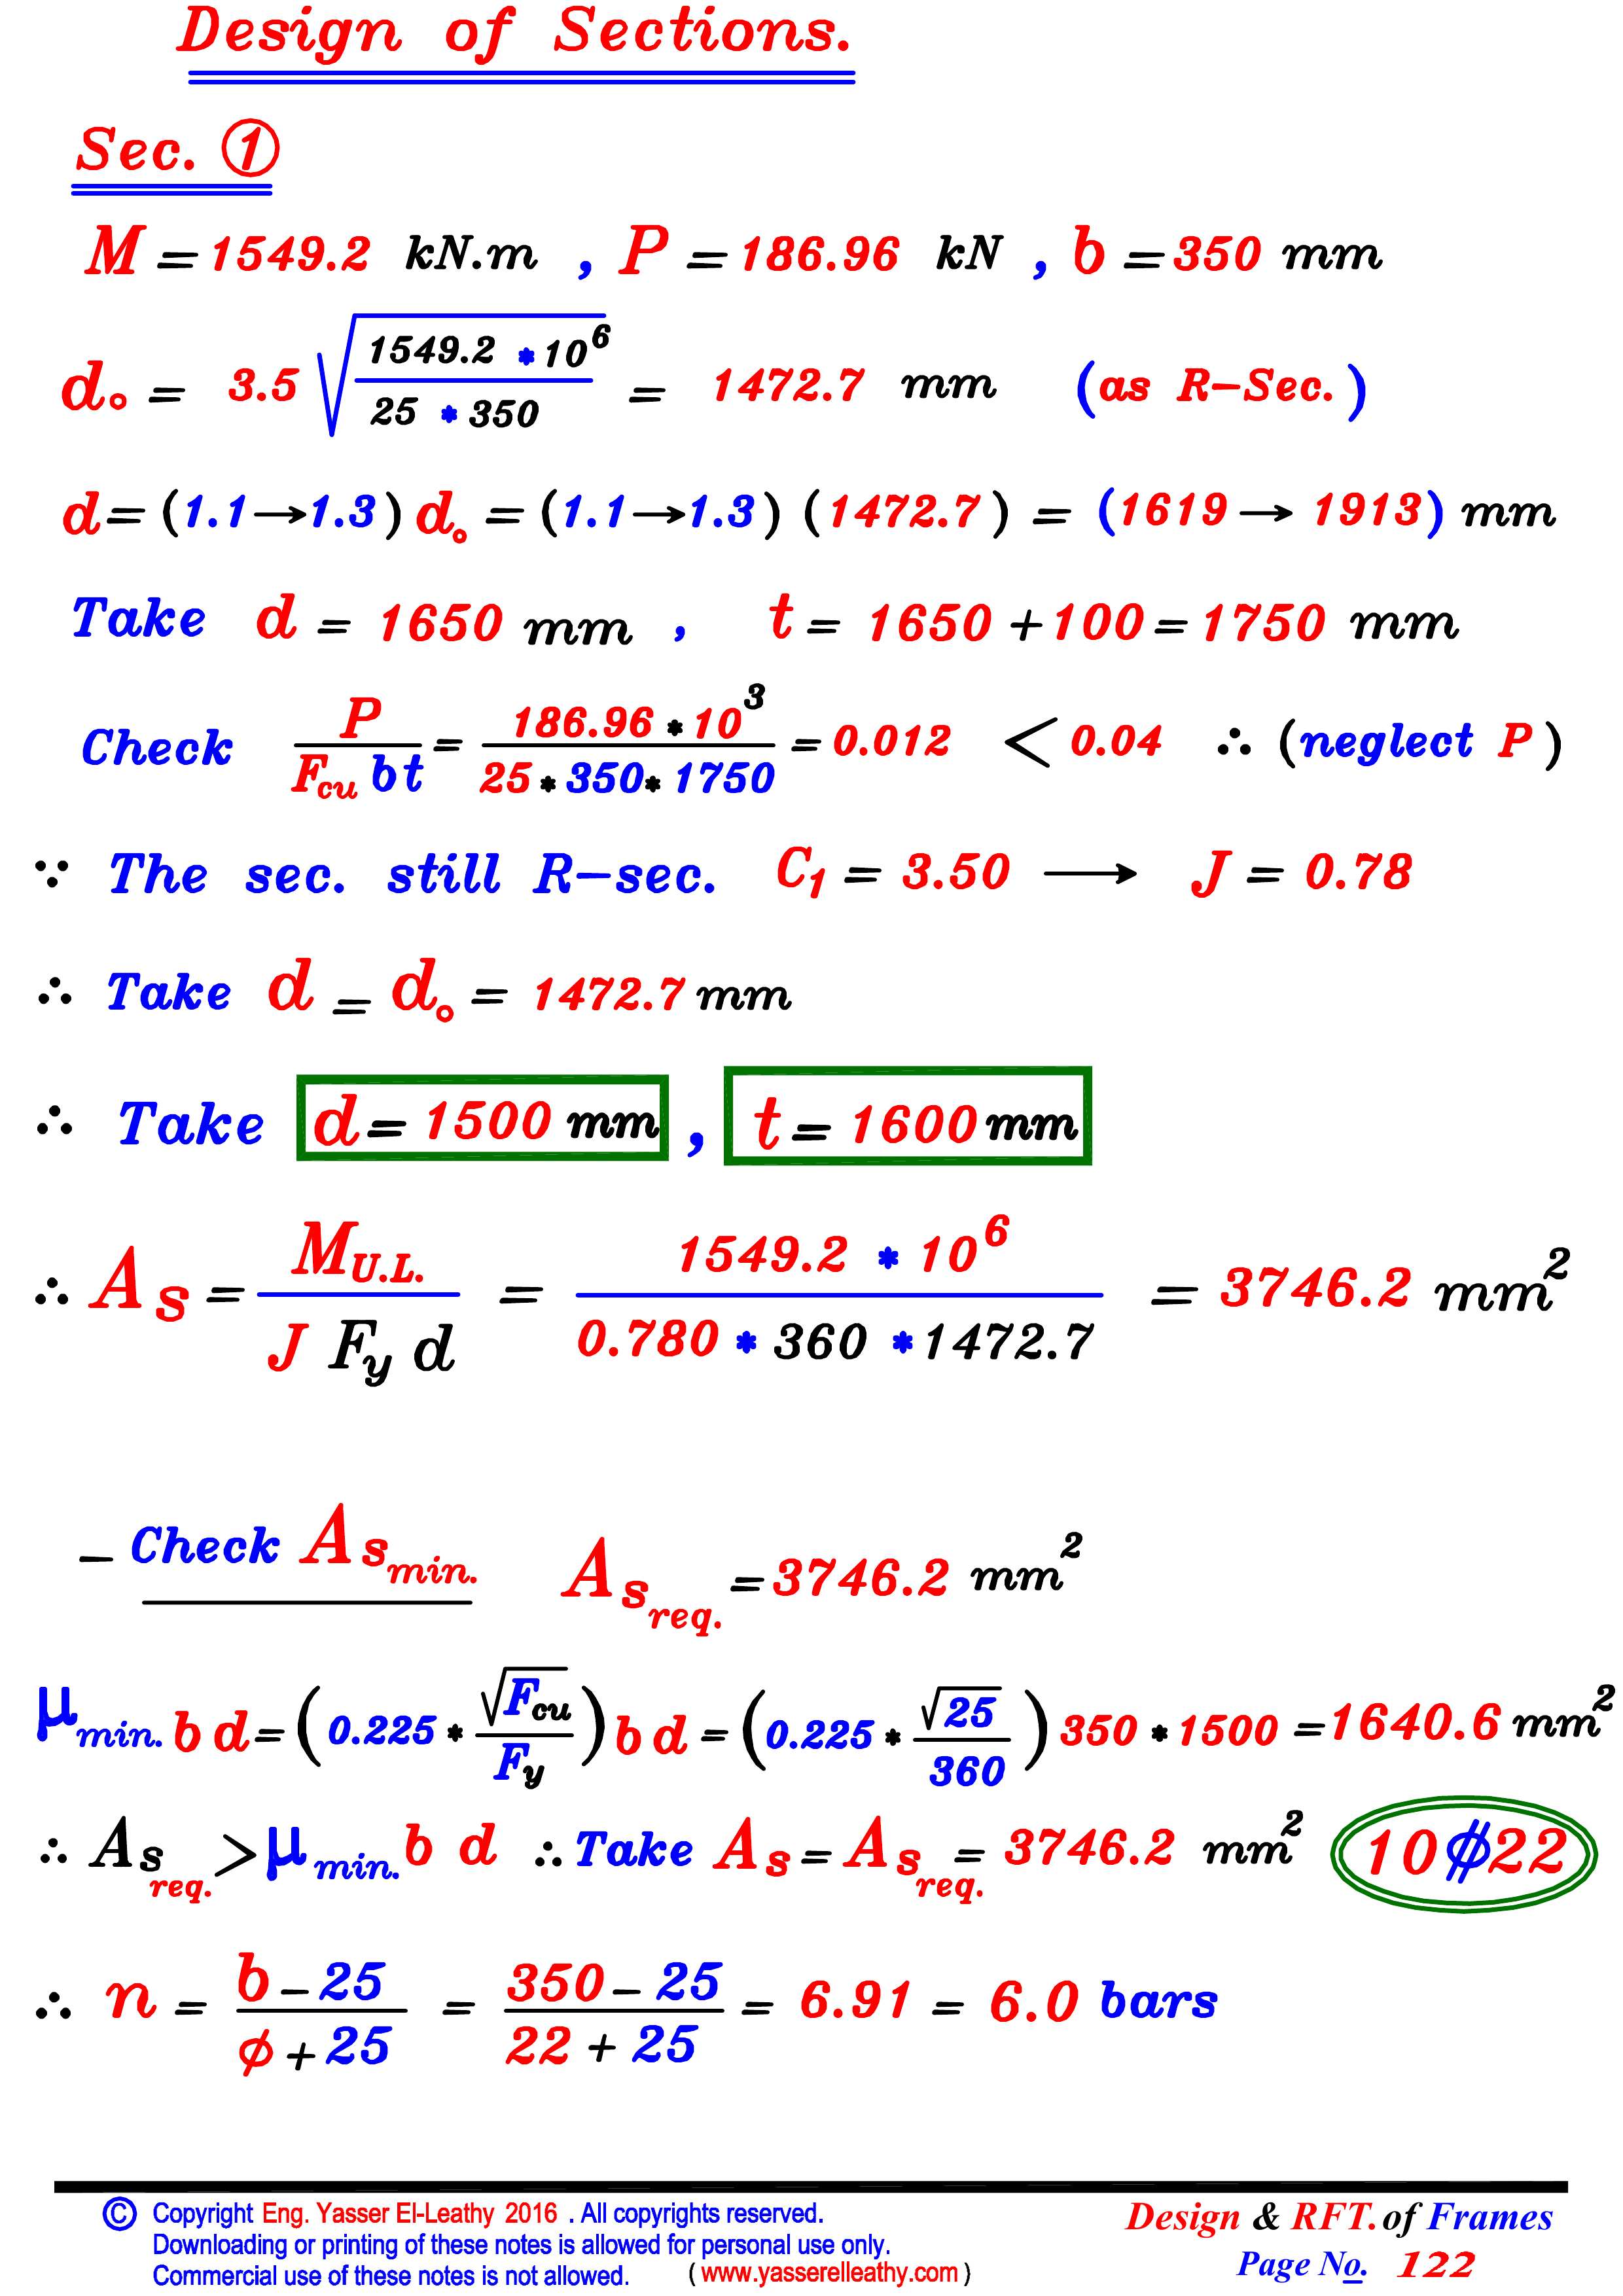 Design of Sections.
Sec. ①
M = 1549.2 kN.m , P = 186.96 kN , b = 350 mm
d₀ = 3.5 √(1549.2 * 10⁶ / 25 * 350) = 1472.7 mm (as R-Sec.)
d = (1.1 → 1.3) d₀ = (1.1 → 1.3) (1472.7) = (1619 → 1913) mm
Take d = 1650 mm , t = 1650 + 100 = 1750 mm
Check P / F_cu b t = 186.96 * 10³ / 25 * 350 * 1750 = 0.012 < 0.04 ∴ (neglect P)
∵ The sec. still R-sec. C₁ = 3.50 → J = 0.78
∴ Take d = d₀ = 1472.7 mm
∴ Take d = 1500 mm , t = 1600 mm
∴ A_s = M_U.L. / J F_y d = 1549.2 * 10⁶ / 0.780 * 360 * 1472.7 = 3746.2 mm²
– Check A_s min. A_s req. = 3746.2 mm²
μ_min. b d = (0.225 * √F_cu / F_y) b d = (0.225 * √25 / 360) 350 * 1500 = 1640.6 mm²
∴ A_s req. > μ_min. b d ∴ Take A_s = A_s req. = 3746.2 mm² 10ϕ22
∴ n = b – 25 / ϕ + 25 = 350 – 25 / 22 + 25 = 6.91 = 6.0 bars
© Copyright Eng. Yasser El-Leathy 2016 . All copyrights reserved.
Downloading or printing of these notes is allowed for personal use only.
Commercial use of these notes is not allowed. ( www.yasserelleathy.com )
Design & RFT. of Frames
Page No. 122